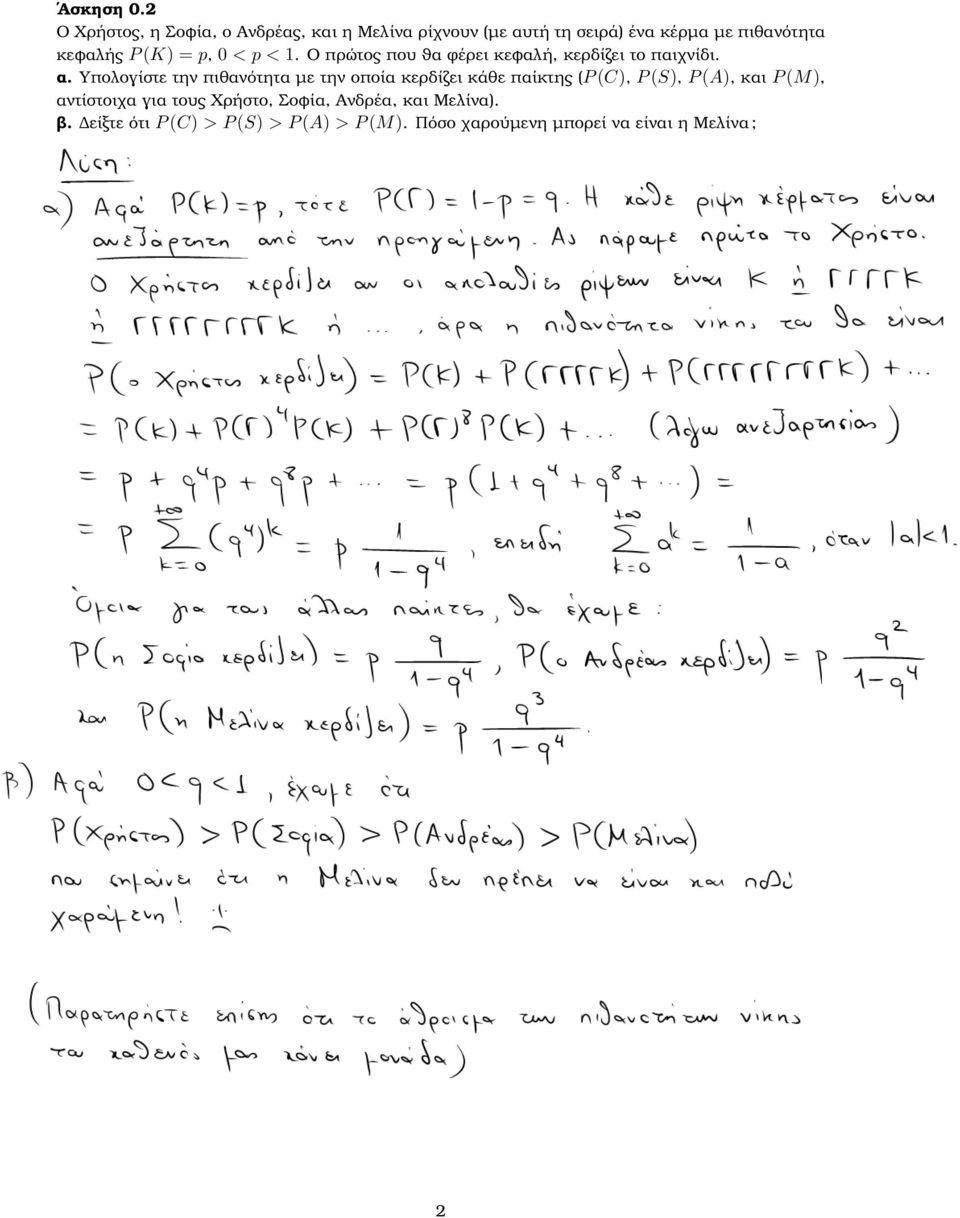 Άσκηση 0.2
Ο Χρήστος, η Σοφία, ο Ανδρέας, και η Μελίνα ρίχνουν (με αυτή τη σειρά) ένα κέρμα με πιθανότητα
κεφαλής P(K) = p, 0 < p < 1. Ο πρώτος που θα φέρει κεφαλή, κερδίζει το παιχνίδι.
α. Υπολογίστε την πιθανότητα με την οποία κερδίζει κάθε παίκτης (P(C), P(S), P(A), και P(M),
αντίστοιχα για τους Χρήστο, Σοφία, Ανδρέα, και Μελίνα).
β. Δείξτε ότι P(C) > P(S) > P(A) > P(M). Πόσο χαρούμενη μπορεί να είναι η Μελίνα;
Λύση:
α) Αφού P(K)=p, τότε P(Γ) = 1-p = q. Η κάθε ρίψη κέρματος είναι
ανεξάρτητη από την προηγούμενη. Ας πάρουμε πρώτα το Χρήστο.
Ο Χρήστος κερδίζει αν οι ακολουθίες ρίψεων είναι Κ ή ΓΓΓΓΚ
ή ΓΓΓΓΓΓΓΓΚ ή ..., άρα η πιθανότητα νίκης του θα είναι
P(ο Χρήστος κερδίζει) = P(K) + P(ΓΓΓΓΚ) + P(ΓΓΓΓΓΓΓΓΚ) + ...
= P(K) + P(Γ)⁴P(K) + P(Γ)⁸P(K) + ... (λόγω ανεξαρτησίας)
= p + q⁴p + q⁸p + ... = p(1 + q⁴ + q⁸ + ...) =
= p Σ_{k=0}^{+∞} (q⁴)^k = p 1/(1-q⁴), επειδή Σ_{k=0}^{+∞} a^k = 1/(1-a), όταν |a|<1.
Όμοια για τους άλλους παίκτες, θα έχουμε:
P(η Σοφία κερδίζει) = p q/(1-q⁴), P(ο Ανδρέας κερδίζει) = p q²/(1-q⁴)
και P(η Μελίνα κερδίζει) = p q³/(1-q⁴).
β) Αφού 0<q<1, έχουμε ότι
P(Χρήστος) > P(Σοφία) > P(Ανδρέας) > P(Μελίνα)
που σημαίνει ότι η Μελίνα δεν πρέπει να είναι και πολύ
χαρούμενη!
(Παρατηρήστε επίσης ότι το άθροισμα των πιθανοτήτων νίκης
του καθενός μας κάνει μονάδα)
2